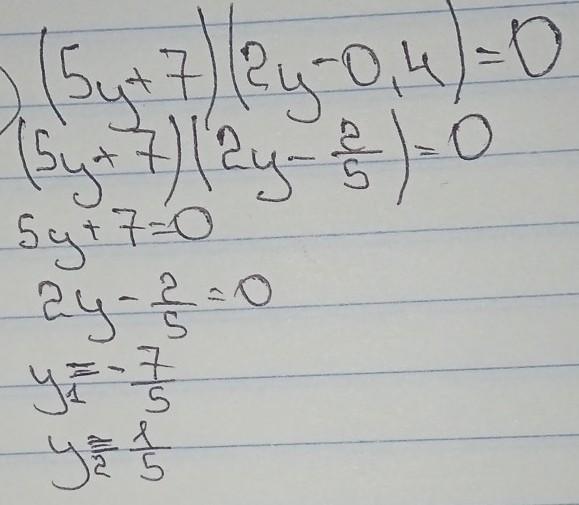 ) (5y+7)(2y-0,4)=0
(5y+7)(2y-2/5)=0
5y+7=0
2y-2/5=0
y₁=-7/5
y₂=1/5